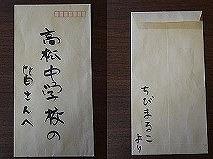 高松中学校の
皆さんへ
ちびまるこ
より